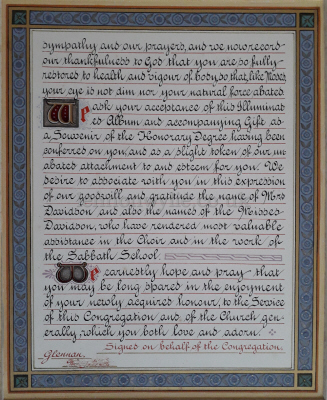 sympathy and our prayers, and we now record
our thankfulness to God that you are so fully
restored to health and vigour of body so that, like Moses,
your eye is not dim nor your natural force abated.
We ask your acceptance of this Illuminat
ed Album and accompanying Gift as
a Souvenir of the Honorary Degree having been
conferred on you, and as a slight token of our un
abated attachment to and esteem for you. We
desire to associate with you in this expression
of our goodwill and gratitude the name of Mrs
Davidson and also the names of the Misses
Davidson, who have rendered most valuable
assistance in the Choir and in the work of
the Sabbath School
We earnestly hope and pray that
you may be long spared in the enjoyment
of your newly acquired honour, to the Service
of this Congregation and of the Church gen-
erally, which you both love and adorn.
Signed on behalf of the Congregation.
Glennan.